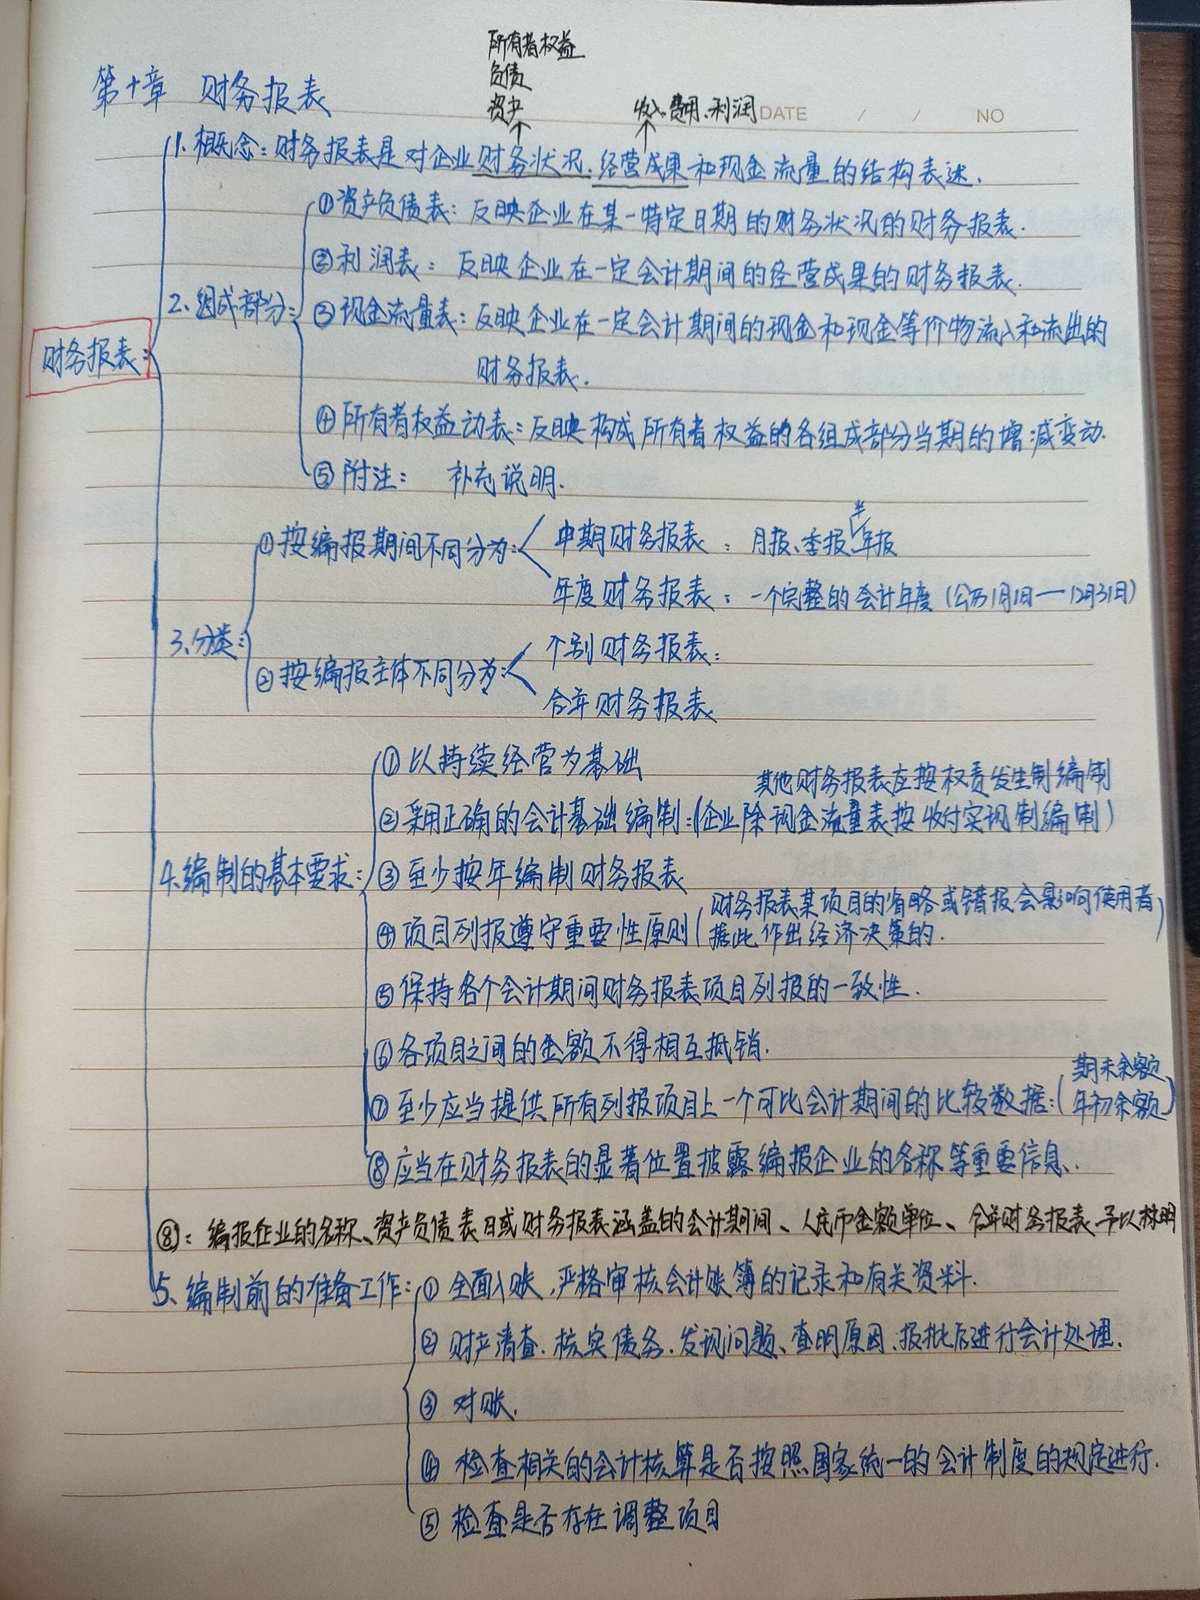 所有者权益
负债
资产
收入、费用、利润
DATE / / NO
第十章 财务报表
1. 概念：财务报表是对企业财务状况、经营成果和现金流量的结构表述.
①资产负债表：反映企业在某一特定日期的财务状况的财务报表.
②利润表：反映企业在一定会计期间的经营成果的财务报表.
2、组成部分：
③现金流量表：反映企业在一定会计期间的现金和现金等价物流入和流出的
财务报表：
财务报表.
④所有者权益动表：反映构成所有者权益的各组成部分当期的增减变动.
⑤附注： 补充说明.
①按编报期间不同分为：
中期财务报表：月报、季报、半年报
年度财务报表：一个完整的会计年度（公历1月1日—12月31日）
3、分类：
②按编报主体不同分为：
个别财务报表：
合并财务报表
①以持续经营为基础
其他财务报表应按权责发生制编制
②采用正确的会计基础编制：（企业除现金流量表按收付实现制编制）
4.编制的基本要求：
③至少按年编制财务报表
④项目列报遵守重要性原则（财务报表某项目的省略或错报会影响使用者
据此作出经济决策的.）
⑤保持各个会计期间财务报表项目列报的一致性.
⑥各项目之间的金额不得相互抵销.
⑦至少应当提供所有列报项目上一个可比会计期间的比较数据：（期末余额
年初余额）
⑧应当在财务报表的显著位置披露编报企业的名称等重要信息.
⑧：编报企业的名称、资产负债表日或财务报表涵盖的会计期间、人民币金额单位、合并财务报表予以标明
5、编制前的准备工作：
①全面入账，严格审核会计账簿的记录和有关资料.
②财产清查、核实债务、发现问题、查明原因、报批后进行会计处理.
③对账.
④检查相关的会计核算是否按照国家统一的会计制度的规定进行.
⑤检查是否存在调整项目